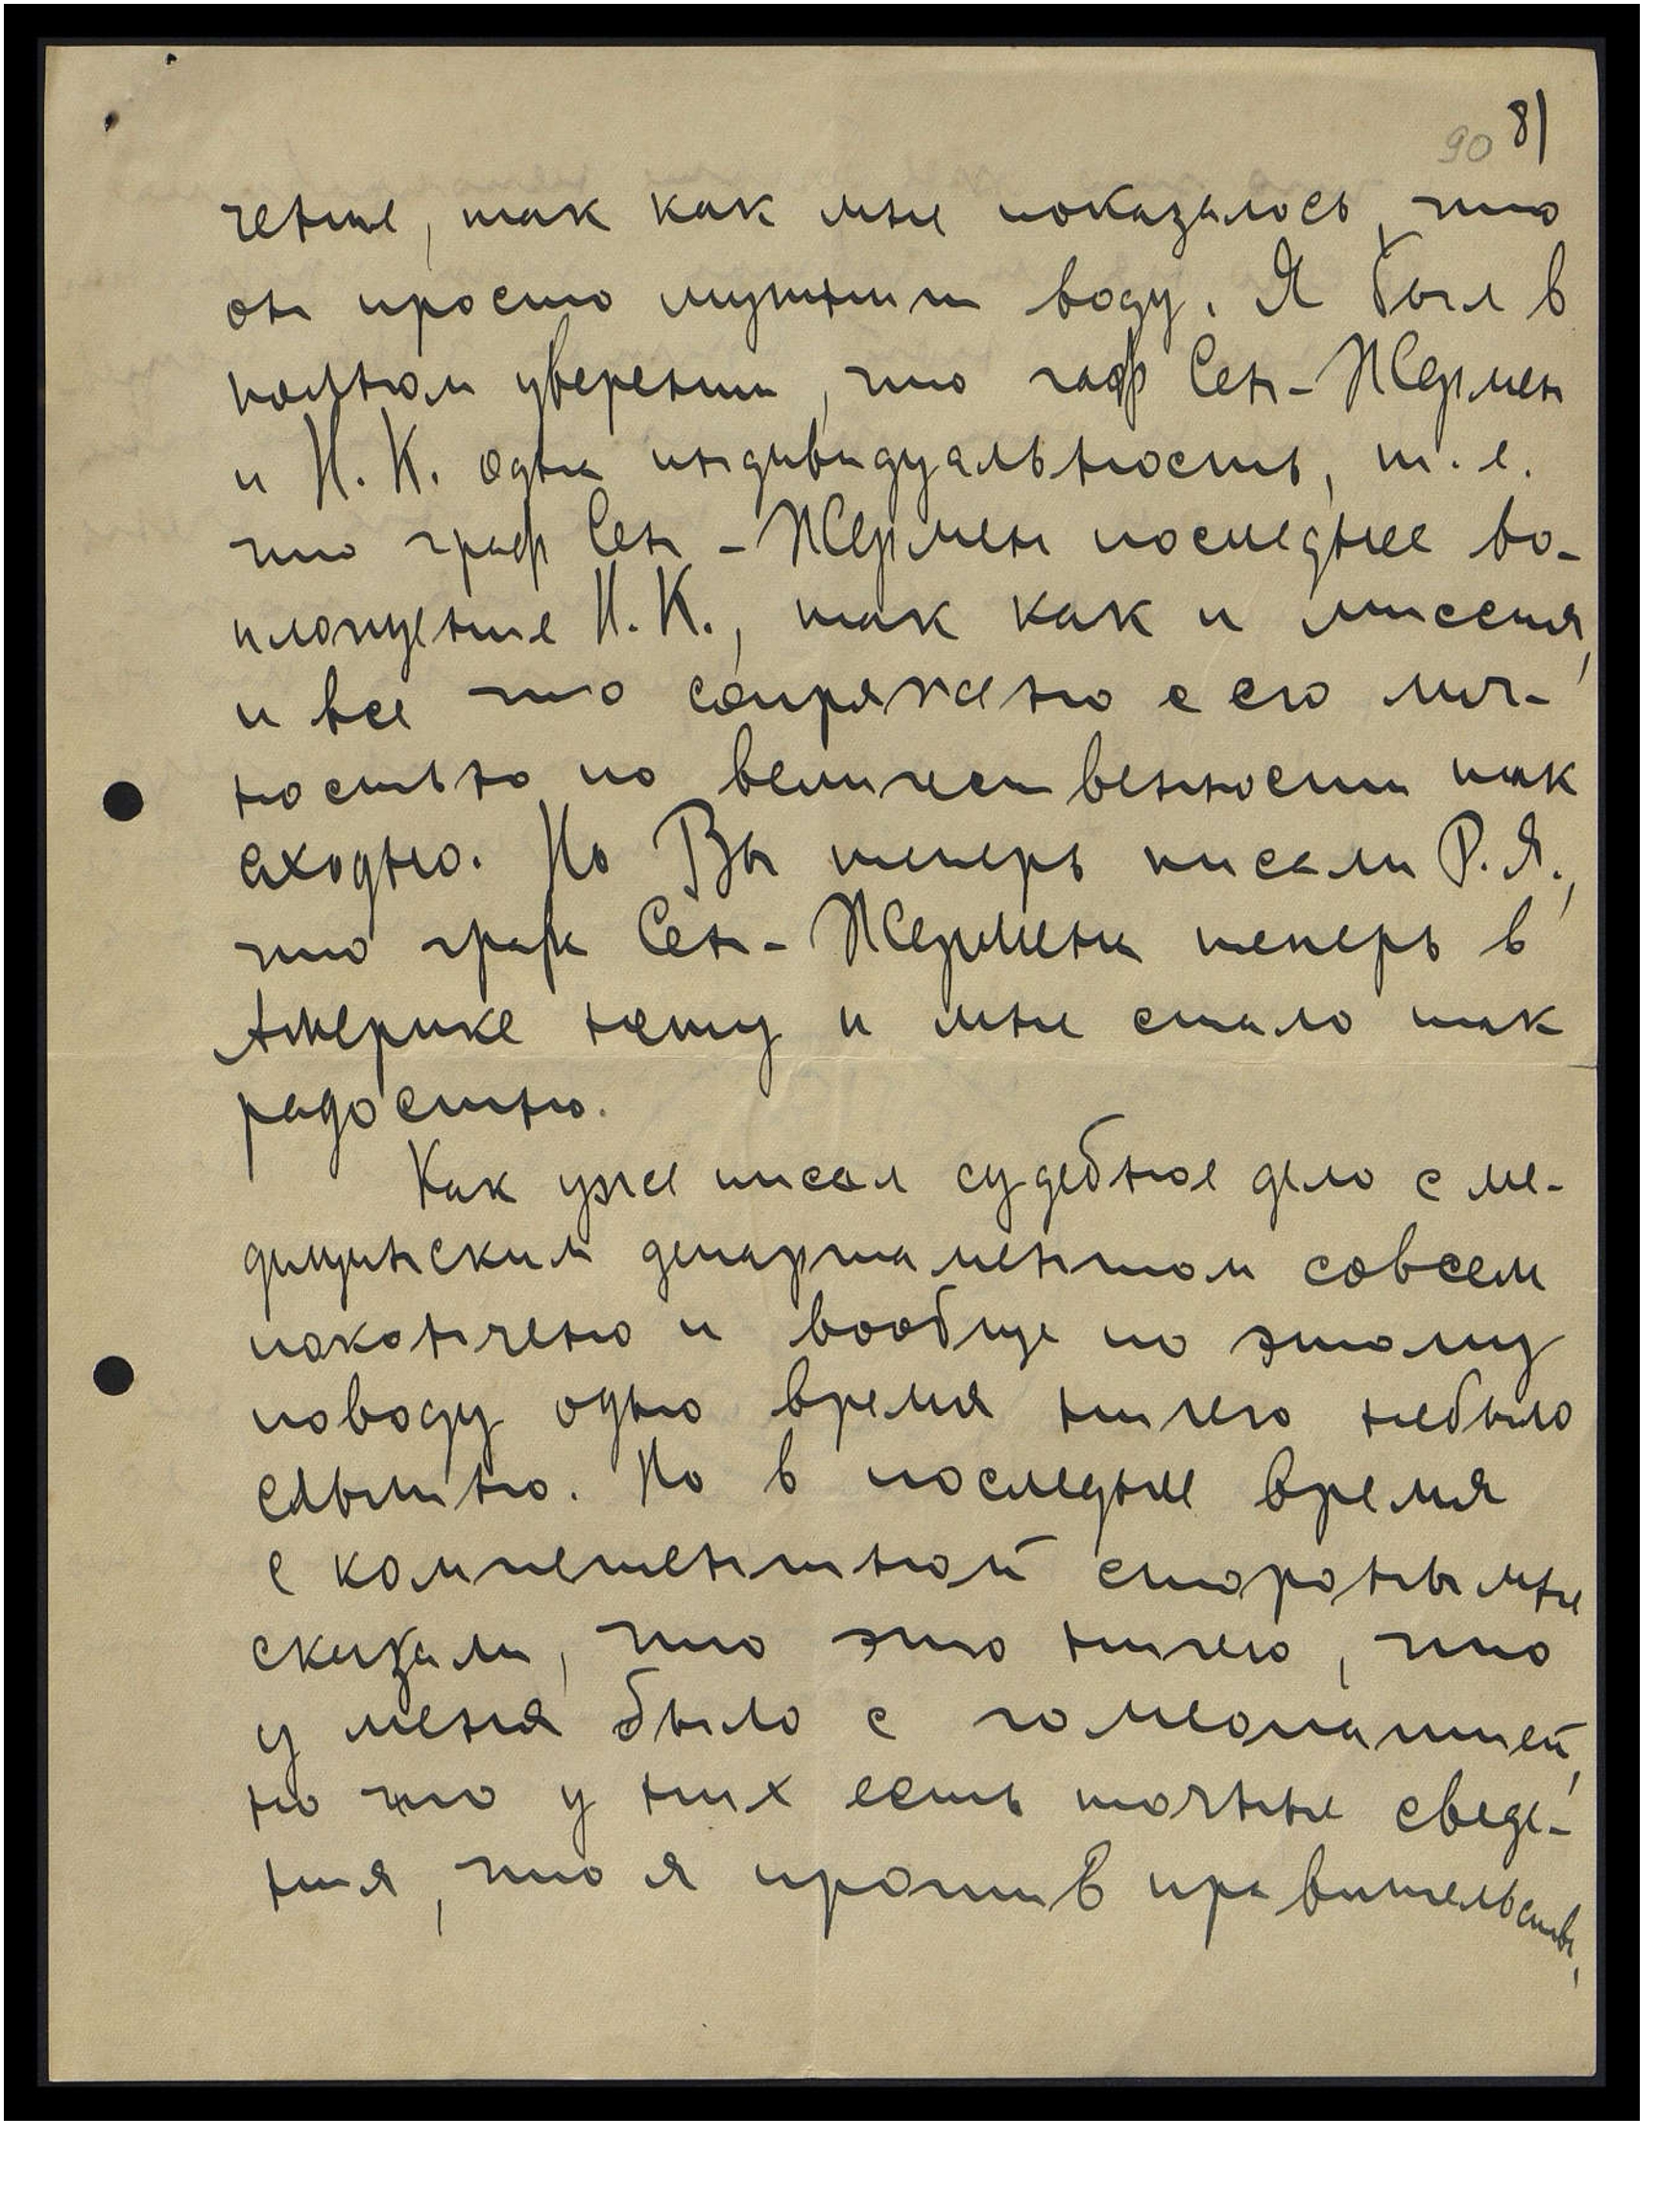 90 8)
чение, так как мне показалось, что
он просто мутнит воду. Я был в
полном уверении, что гаф Сен-Жермен
и Н.К. одна индивидуальность, т.е.
что граф Сен-Жермен последнее во-
площение Н.К., так как и миссия,
и все что сопряжено с его лич-
ностью по величественности так
сходно. Но Вы теперь писали Р.Я.,
что графа Сен-Жермена теперь в
Америке нету и мне стало так
радостно.
Как уже писал судебное дело с ме-
дицинским департаментом совсем
покончено и вообще по этому
поводу одно время ничего небыло
слышно. Но в последнее время
с компетентной стороны мне
сказали, что это ничего, что
у меня было с гомеопатией,
но что у них есть точные сведе-
ния, что я против правительства,